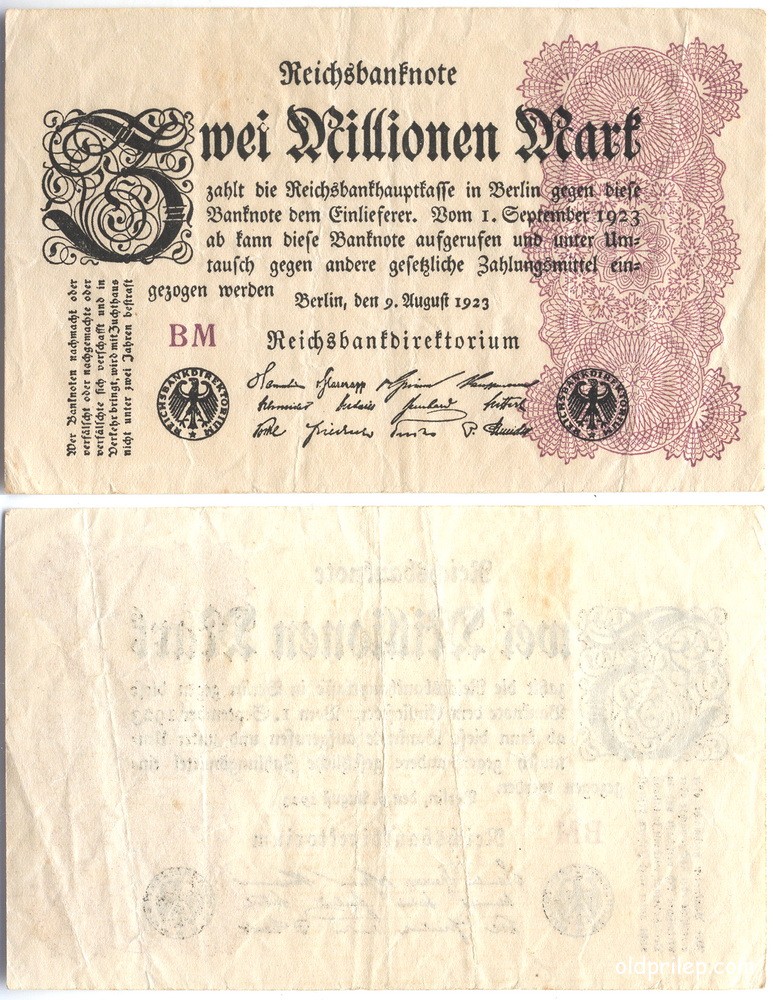 Reichsbanknote
Zwei Millionen Mark
zahlt die Reichsbankhauptkasse in Berlin gegen diese
Banknote dem Einlieferer. Vom 1. September 1923
ab kann diese Banknote aufgerufen und unter Um=
tausch gegen andere gesetzliche Zahlungsmittel ein=
gezogen werden
Berlin, den 9. August 1923
BM
Reichsbankdirektorium
Wer Banknoten nachmacht oder
verfälscht oder nachgemachte oder
verfälschte sich verschafft und in
Verkehr bringt, wird mit Zuchthaus
nicht unter zwei Jahren bestraft
REICHSBANKDIREKTORIUM
REICHSBANKDIREKTORIUM
oldprilep.com